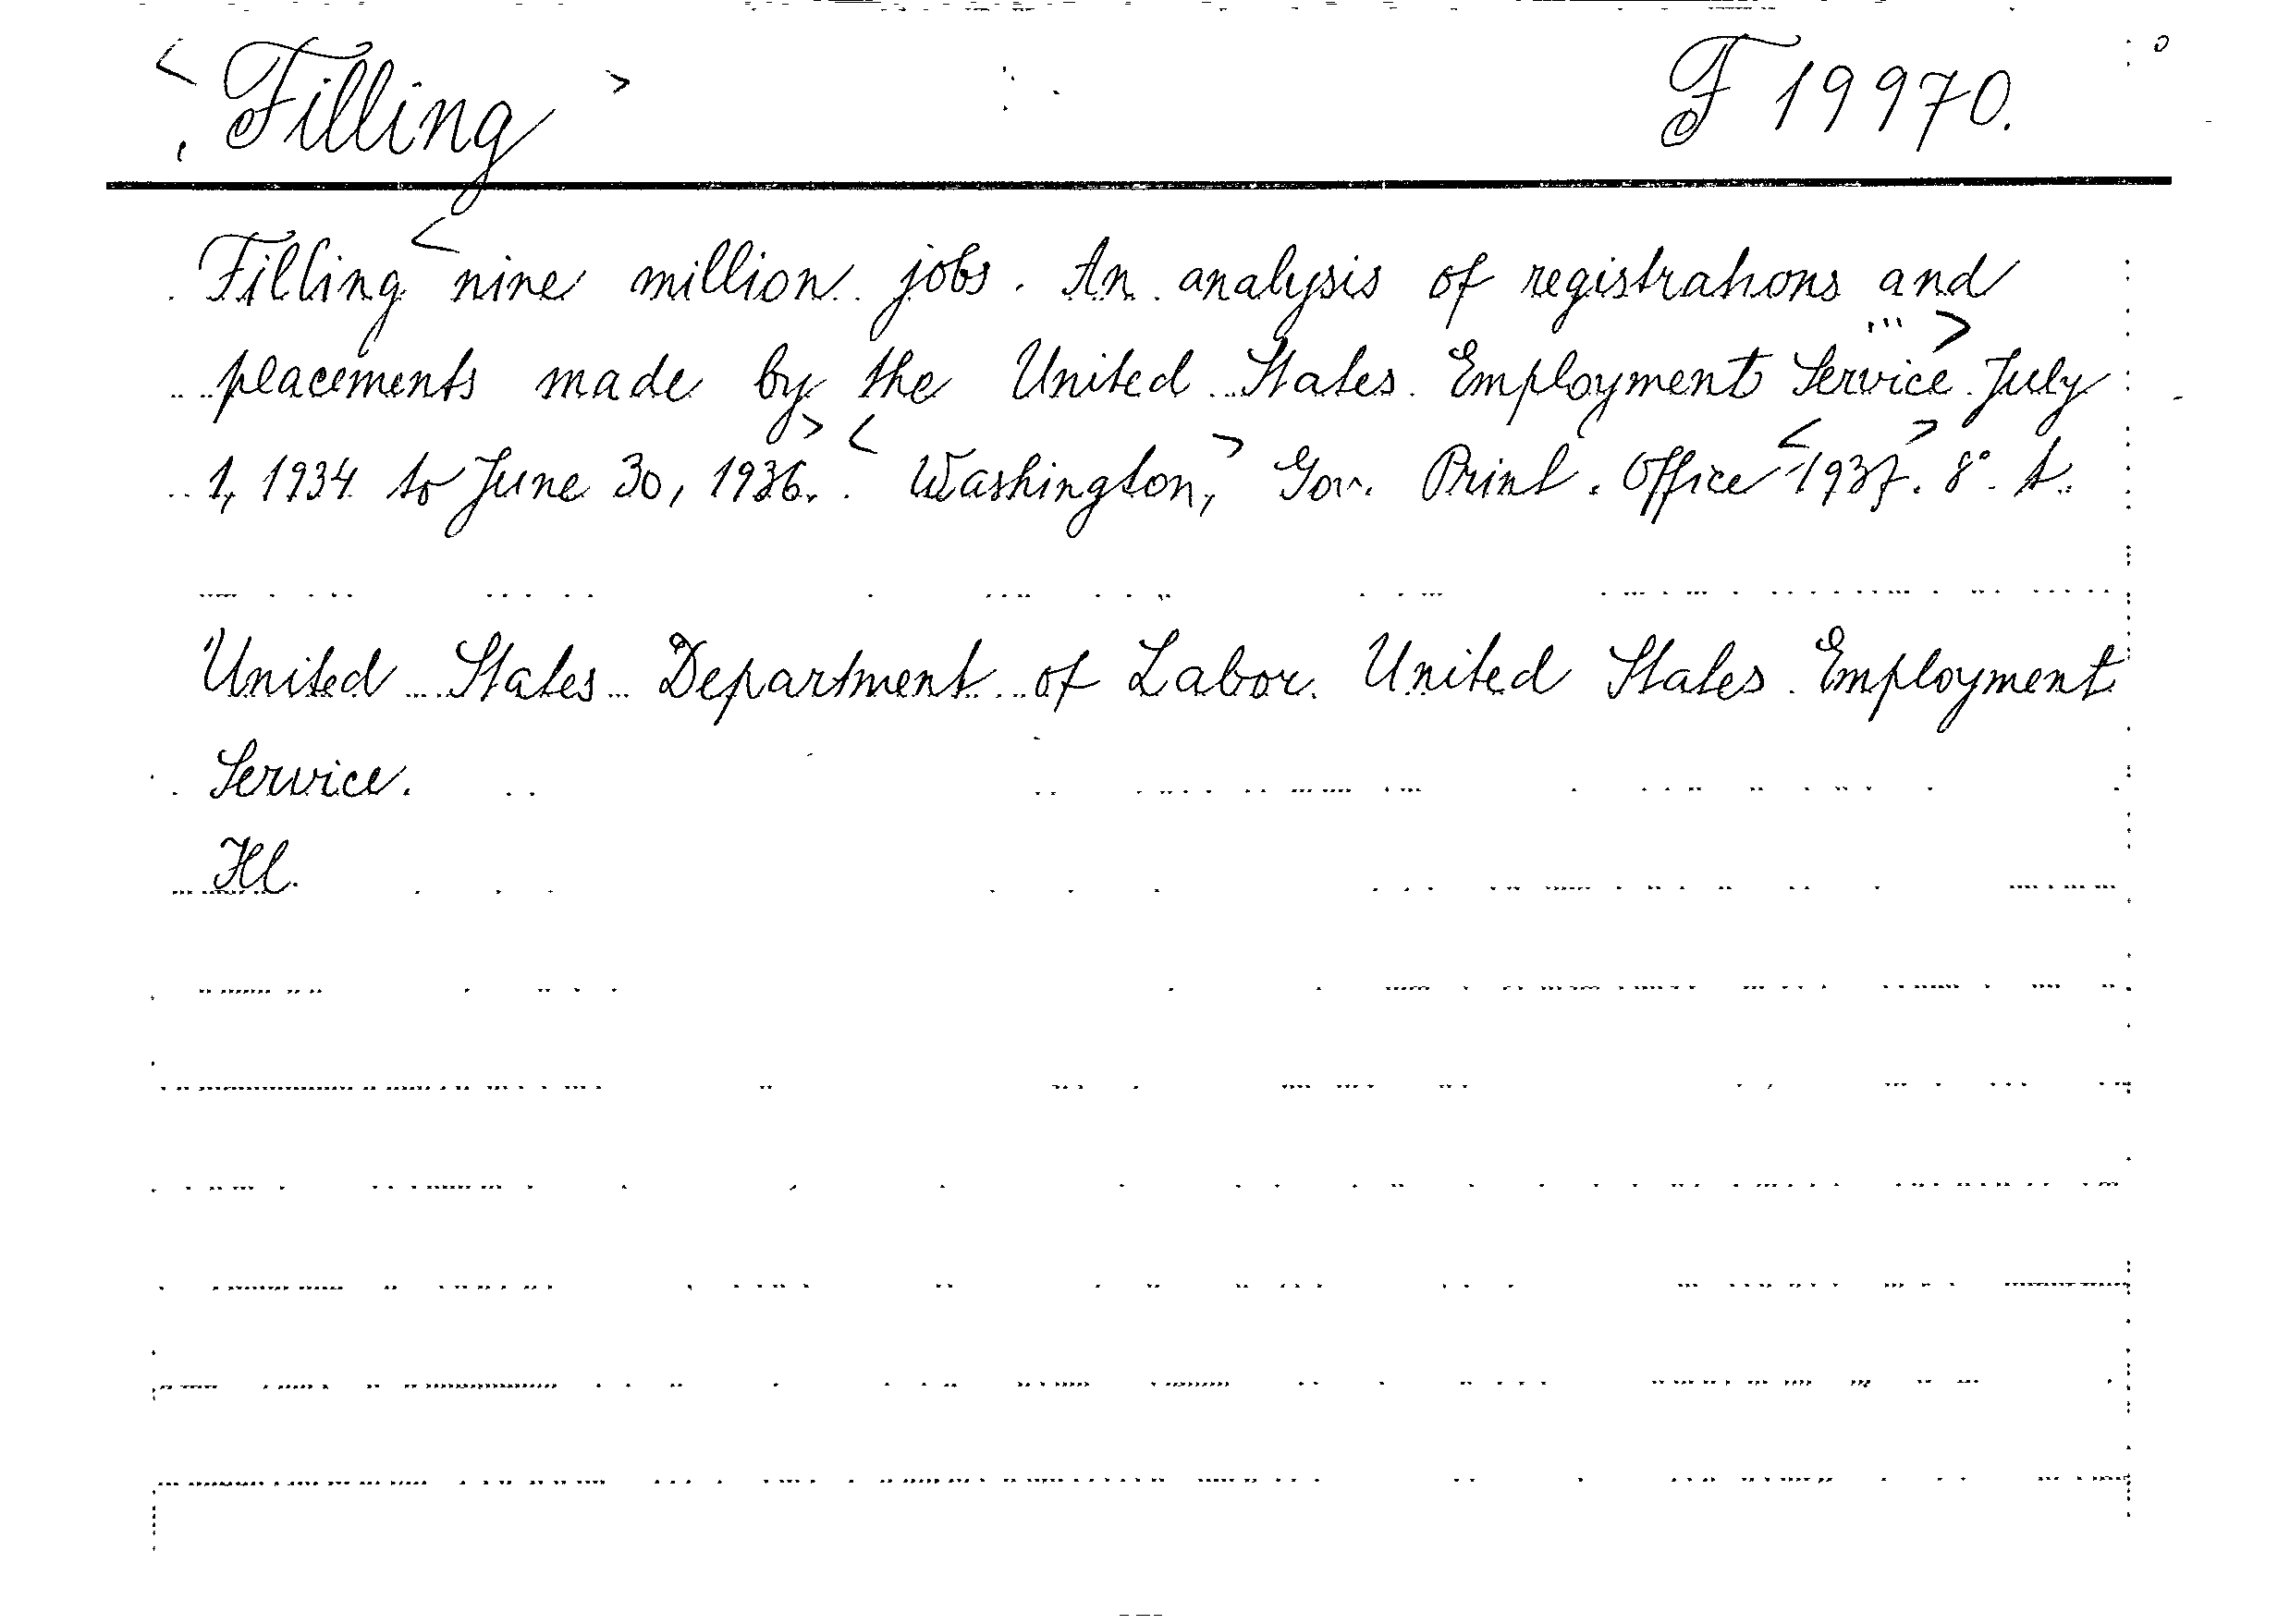 < Filling > F 19970.
Filling < nine million jobs. An analysis of registrations and
placements made by the United States Employment Service > July
1, 1934 to June 30, 1936. > < Washington, > Gov. Print. Office < 1937. > 8°. t.
United States Department of Labor. United States Employment
Service.
Hl.